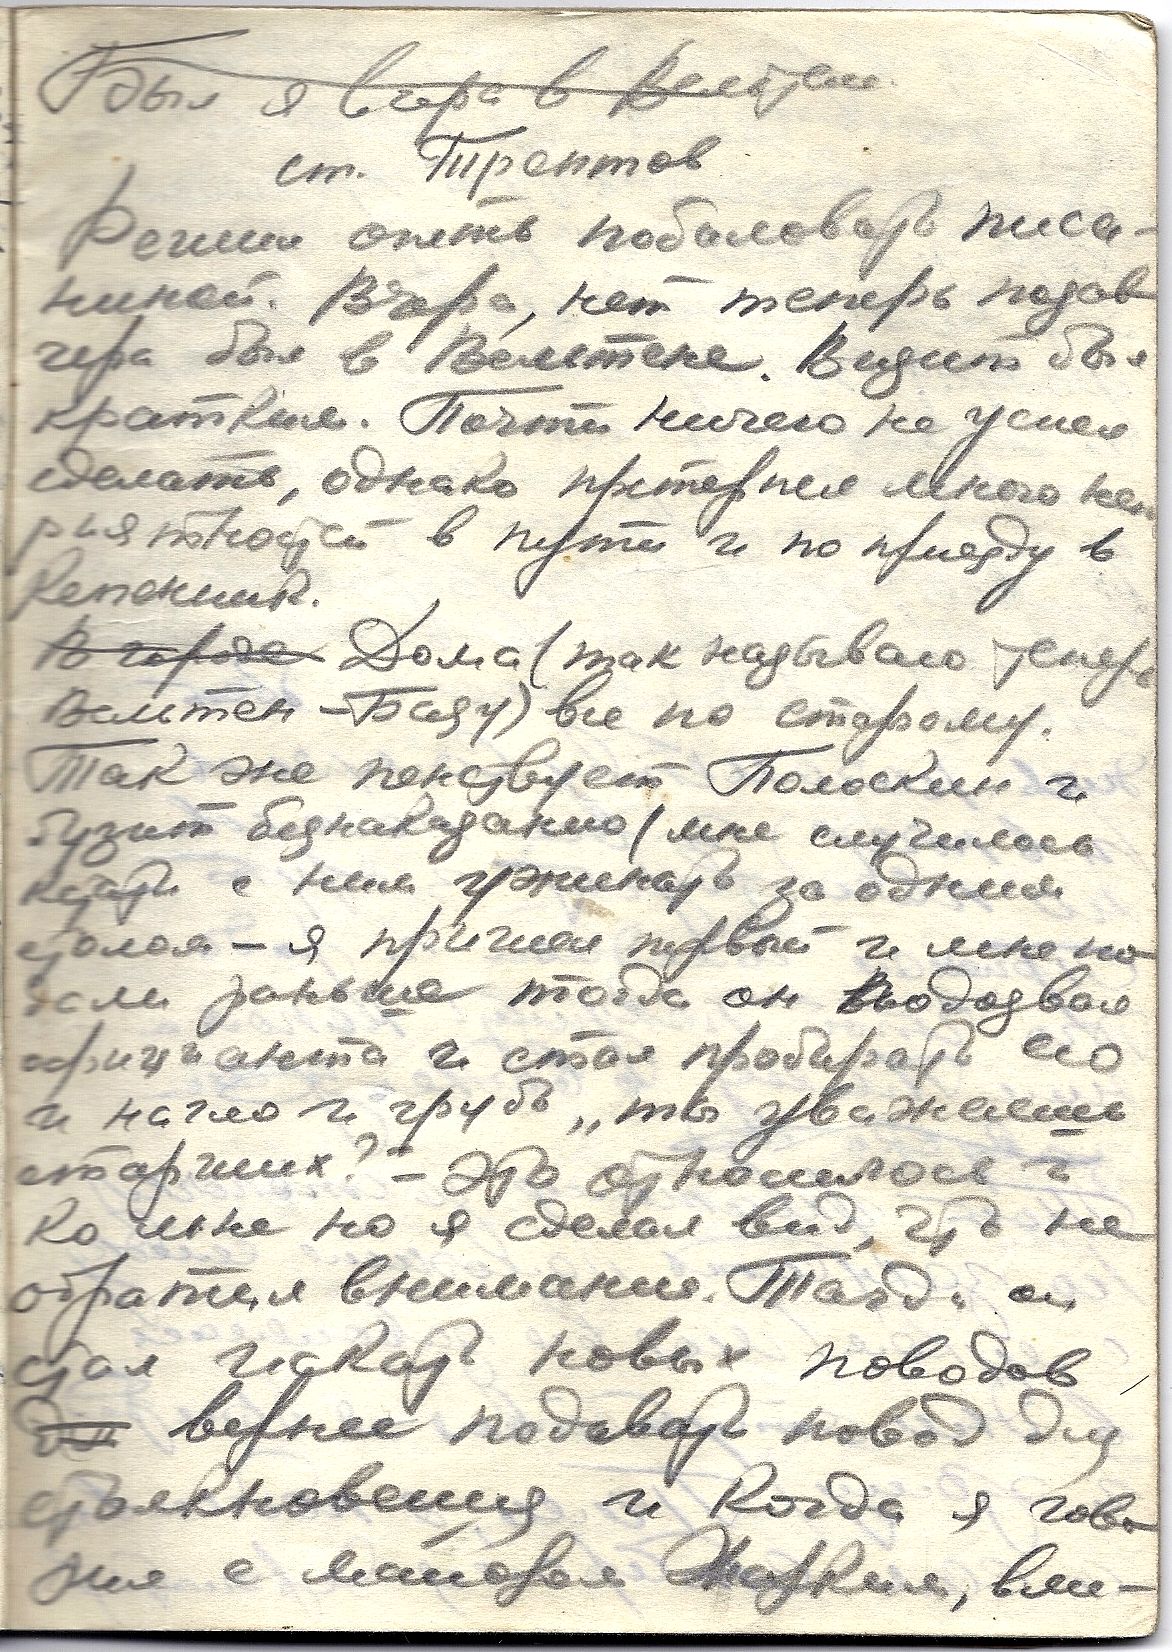 Был я вчера в Вельтен.
ст. Трептов
Решил опять побаловать писа-
ниной. Вчера, нет теперь позав
чера был в Вельтене. Визит был
кратким. Почти ничего не успел
сделать, однако притерпел много неп
риятностей в пути и по приезду в
Кепеник.
В городе Дома (так называю теперь
Вельтен - Базу) все по старому.
Так же пенствует Полоскин и
бузит безнаказанно (мне случилось
кстати с ним ужинать за одним
столом - я пришел первый и мне по-
дали раньше тогда он подозвал
официанта и стал пробирать его
и нагло и грубо „ты уважаешь
старших?“ - Это относилось и
ко мне но я сделал вид, что не
обратил внимание. Тогда он
стал искать новых поводов,
вернее подавать повод для
столкновения и когда я гово
рил с майором Жарким, вме-